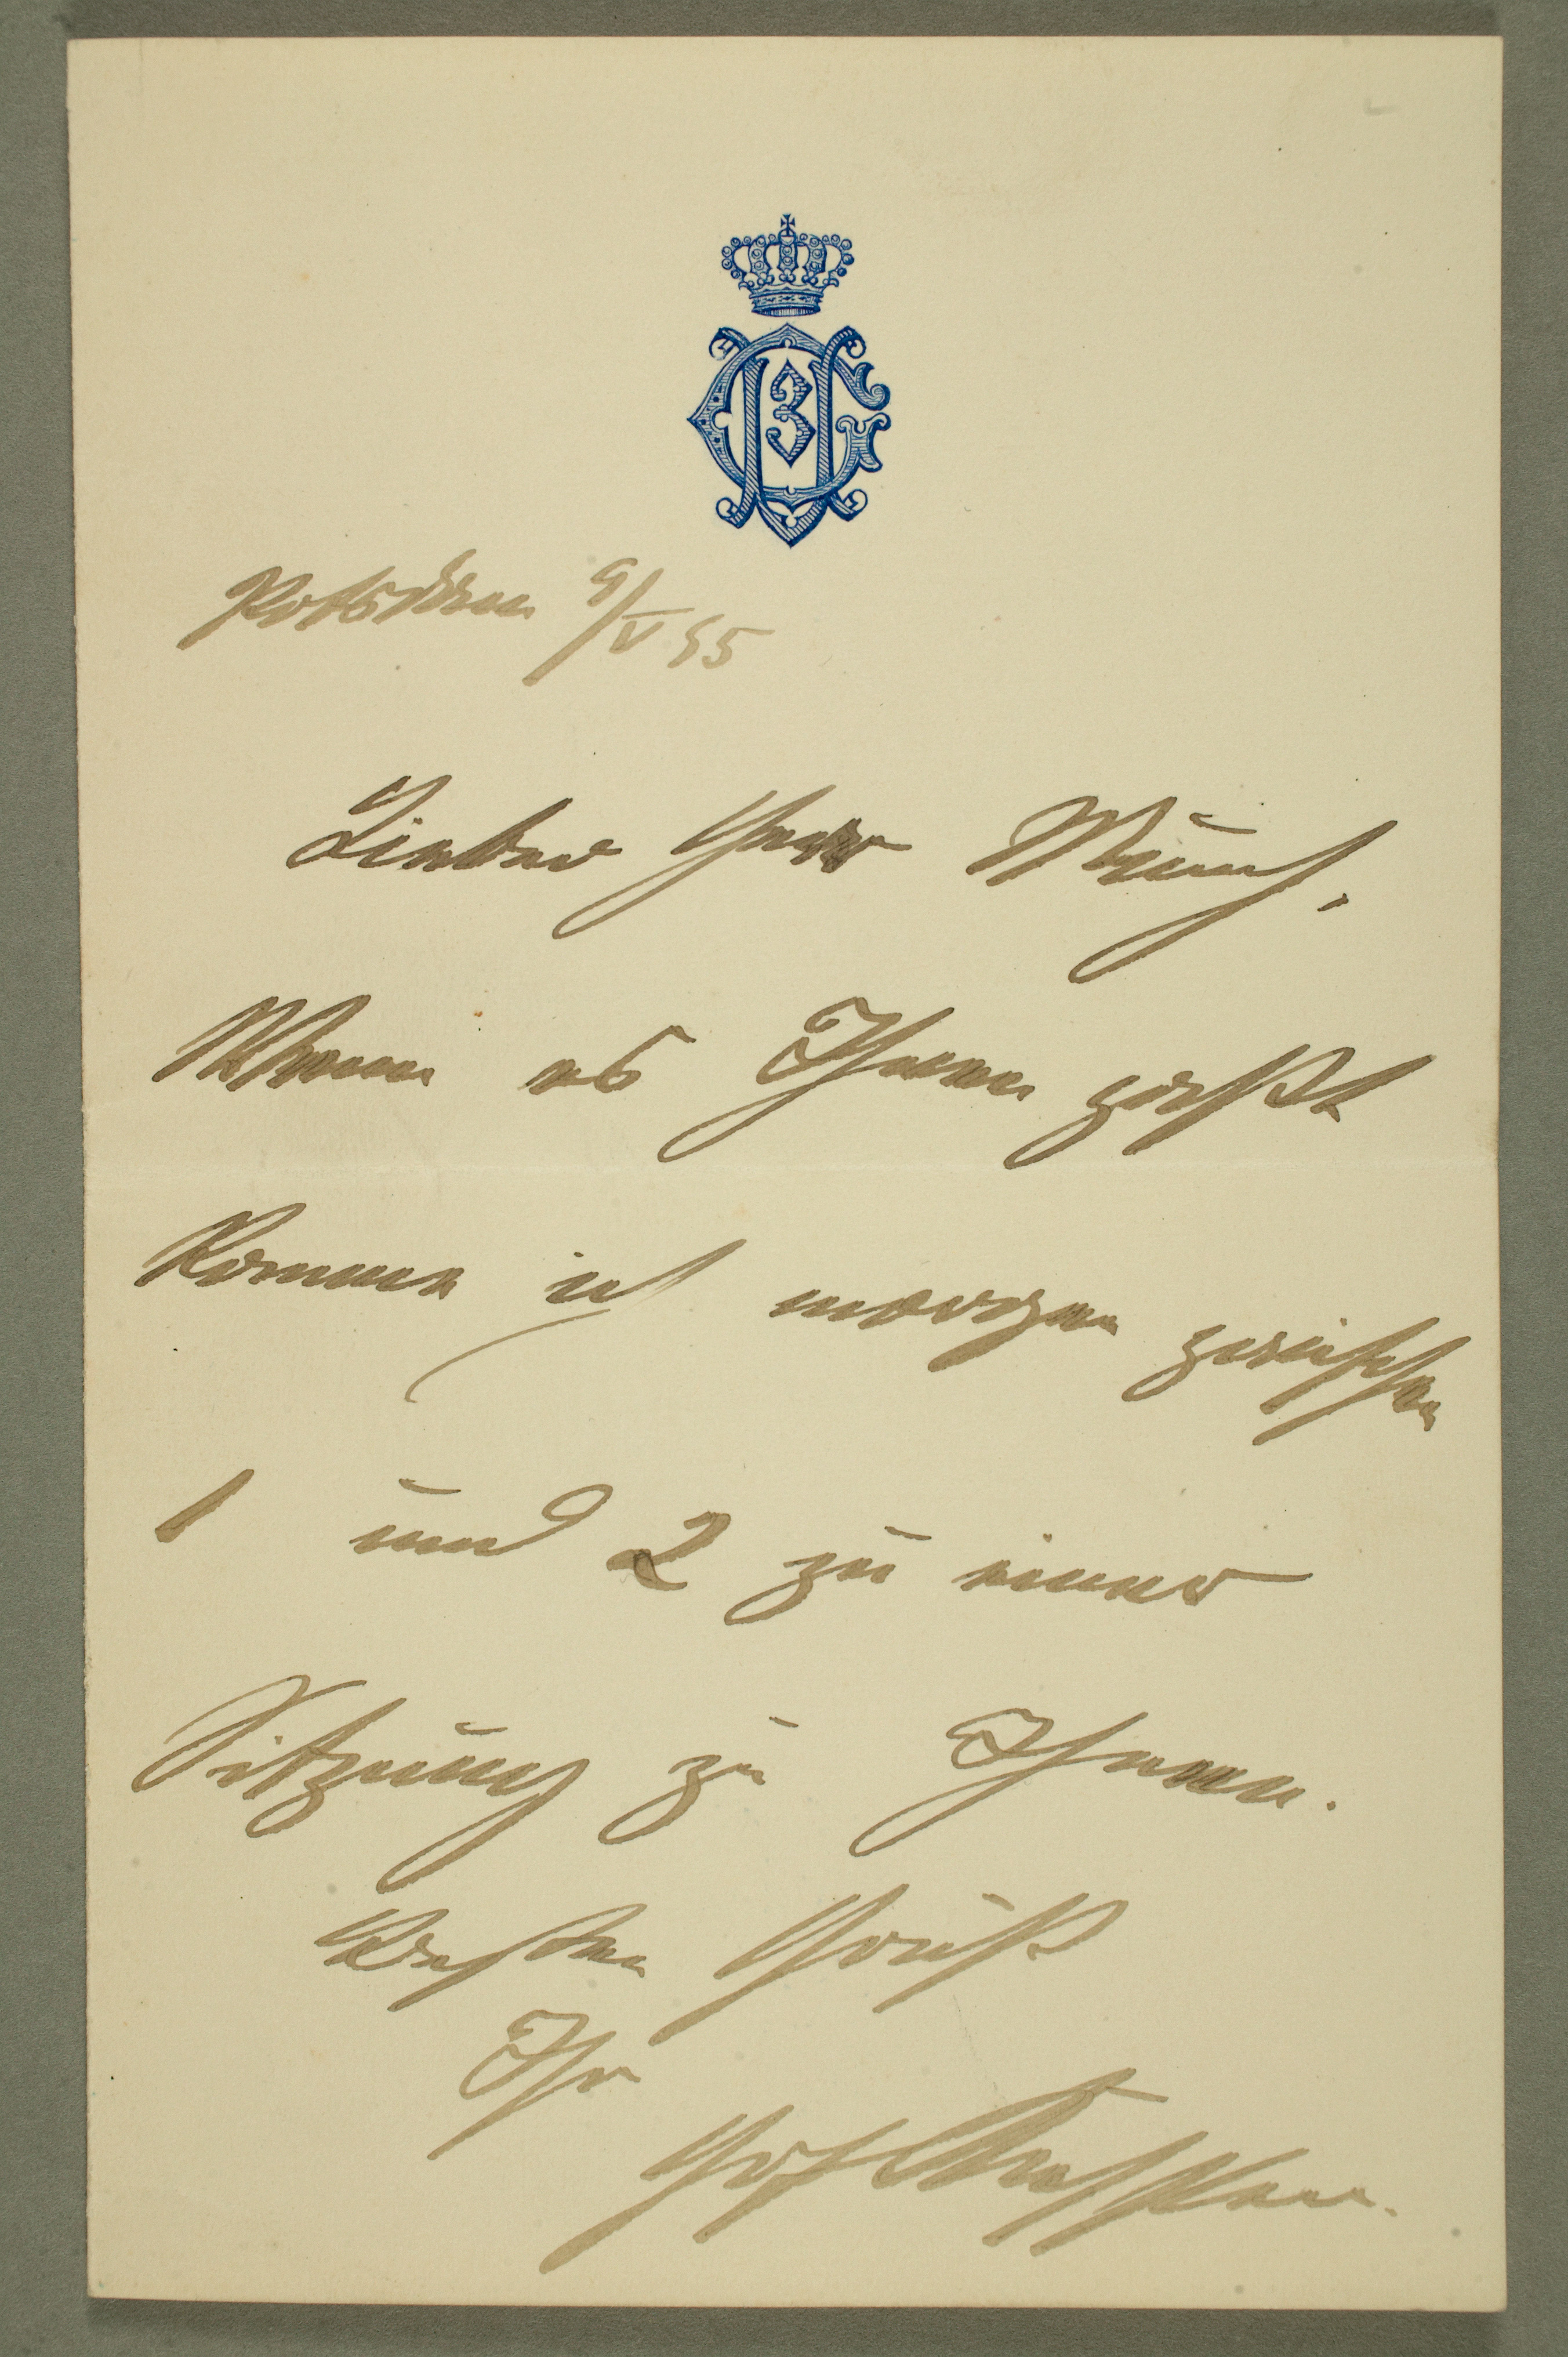 Potsdam 9/V 95
Lieber Herr Munch.
Wenn es Ihnen paßt
komme ich morgen zwischen
1 und 2 zu einer
Sitzung zu Ihnen.
Besten Gruß
Ihr
Grf Kessler.